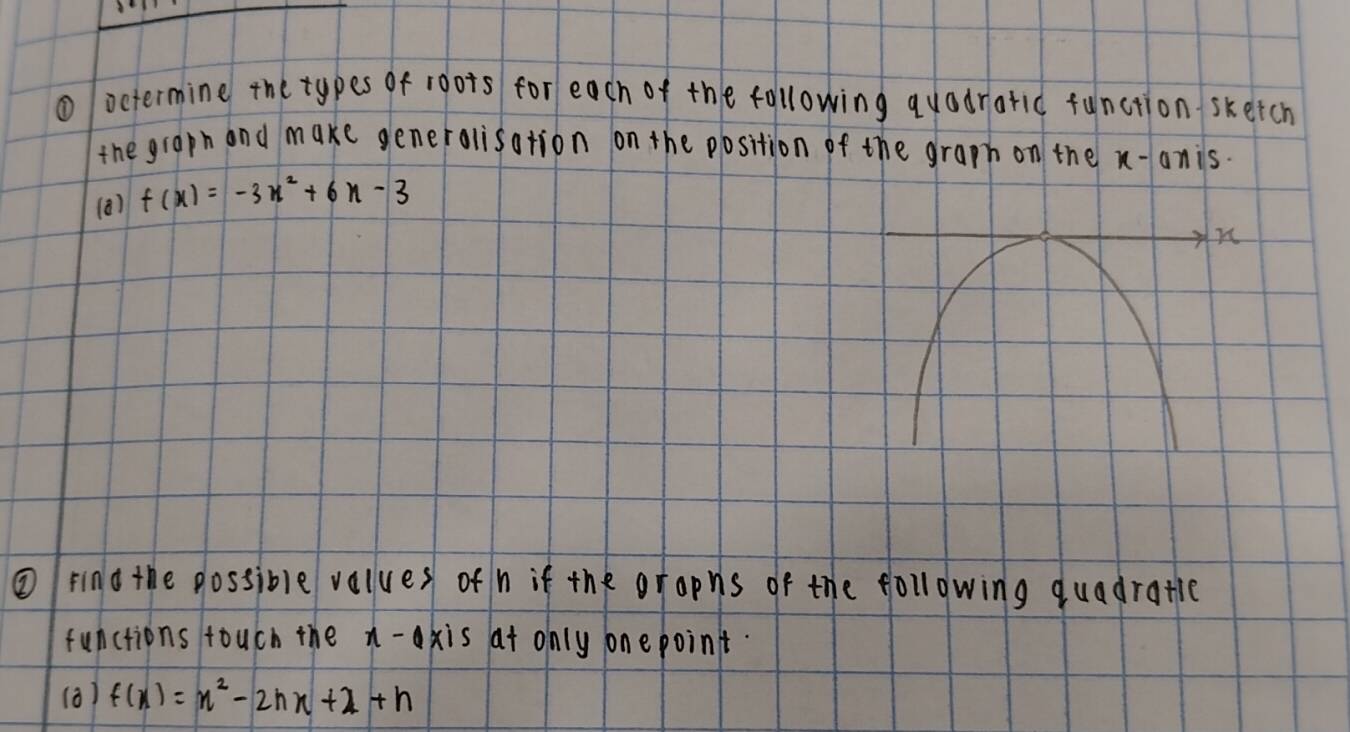 ① Determine the types of roots for each of the following quadratic function. sketch
the graph and make generalisation on the position of the graph on the x-axis.
(a) f(x) = -3x² + 6x - 3
x
② Find the possible values of h if the graphs of the following quadratic
functions touch the x-axis at only one point.
(a) f(x) = x² - 2hx + 2 + h